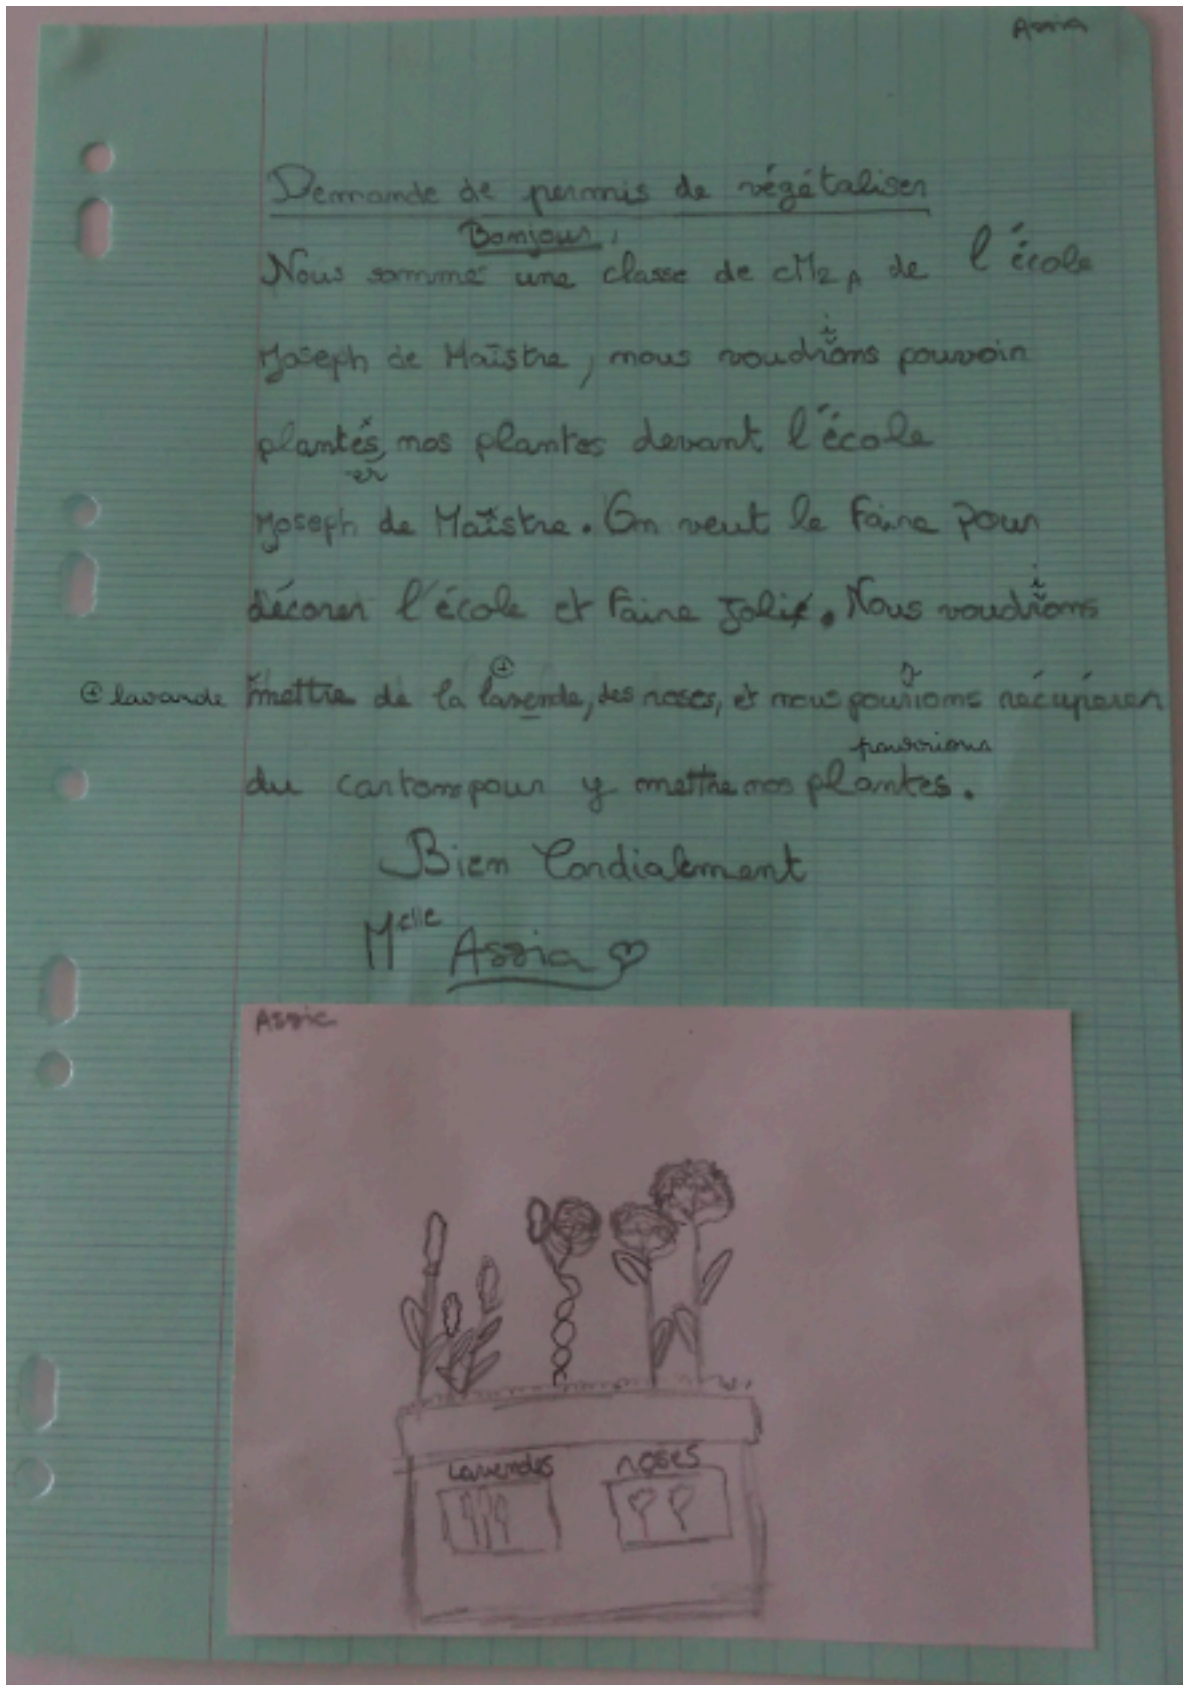 Assia
Demande de permis de végétaliser
Bonjour,
Nous somme une classe de CM2 A de l'école
Joseph de Maistre, nous voudrions pouvoir
plantés nos plantes devant l'école
er
Joseph de Maistre. On veut le faire pour
décorer l'école et faire joli. Nous voudrions
⊕ lavande mettre de la lavende, des roses, et nous pourions récupérer
pourrions
du carton pour y mettre nos plantes.
Bien Cordialement
Melle Assia
Assia
Lavendes roses